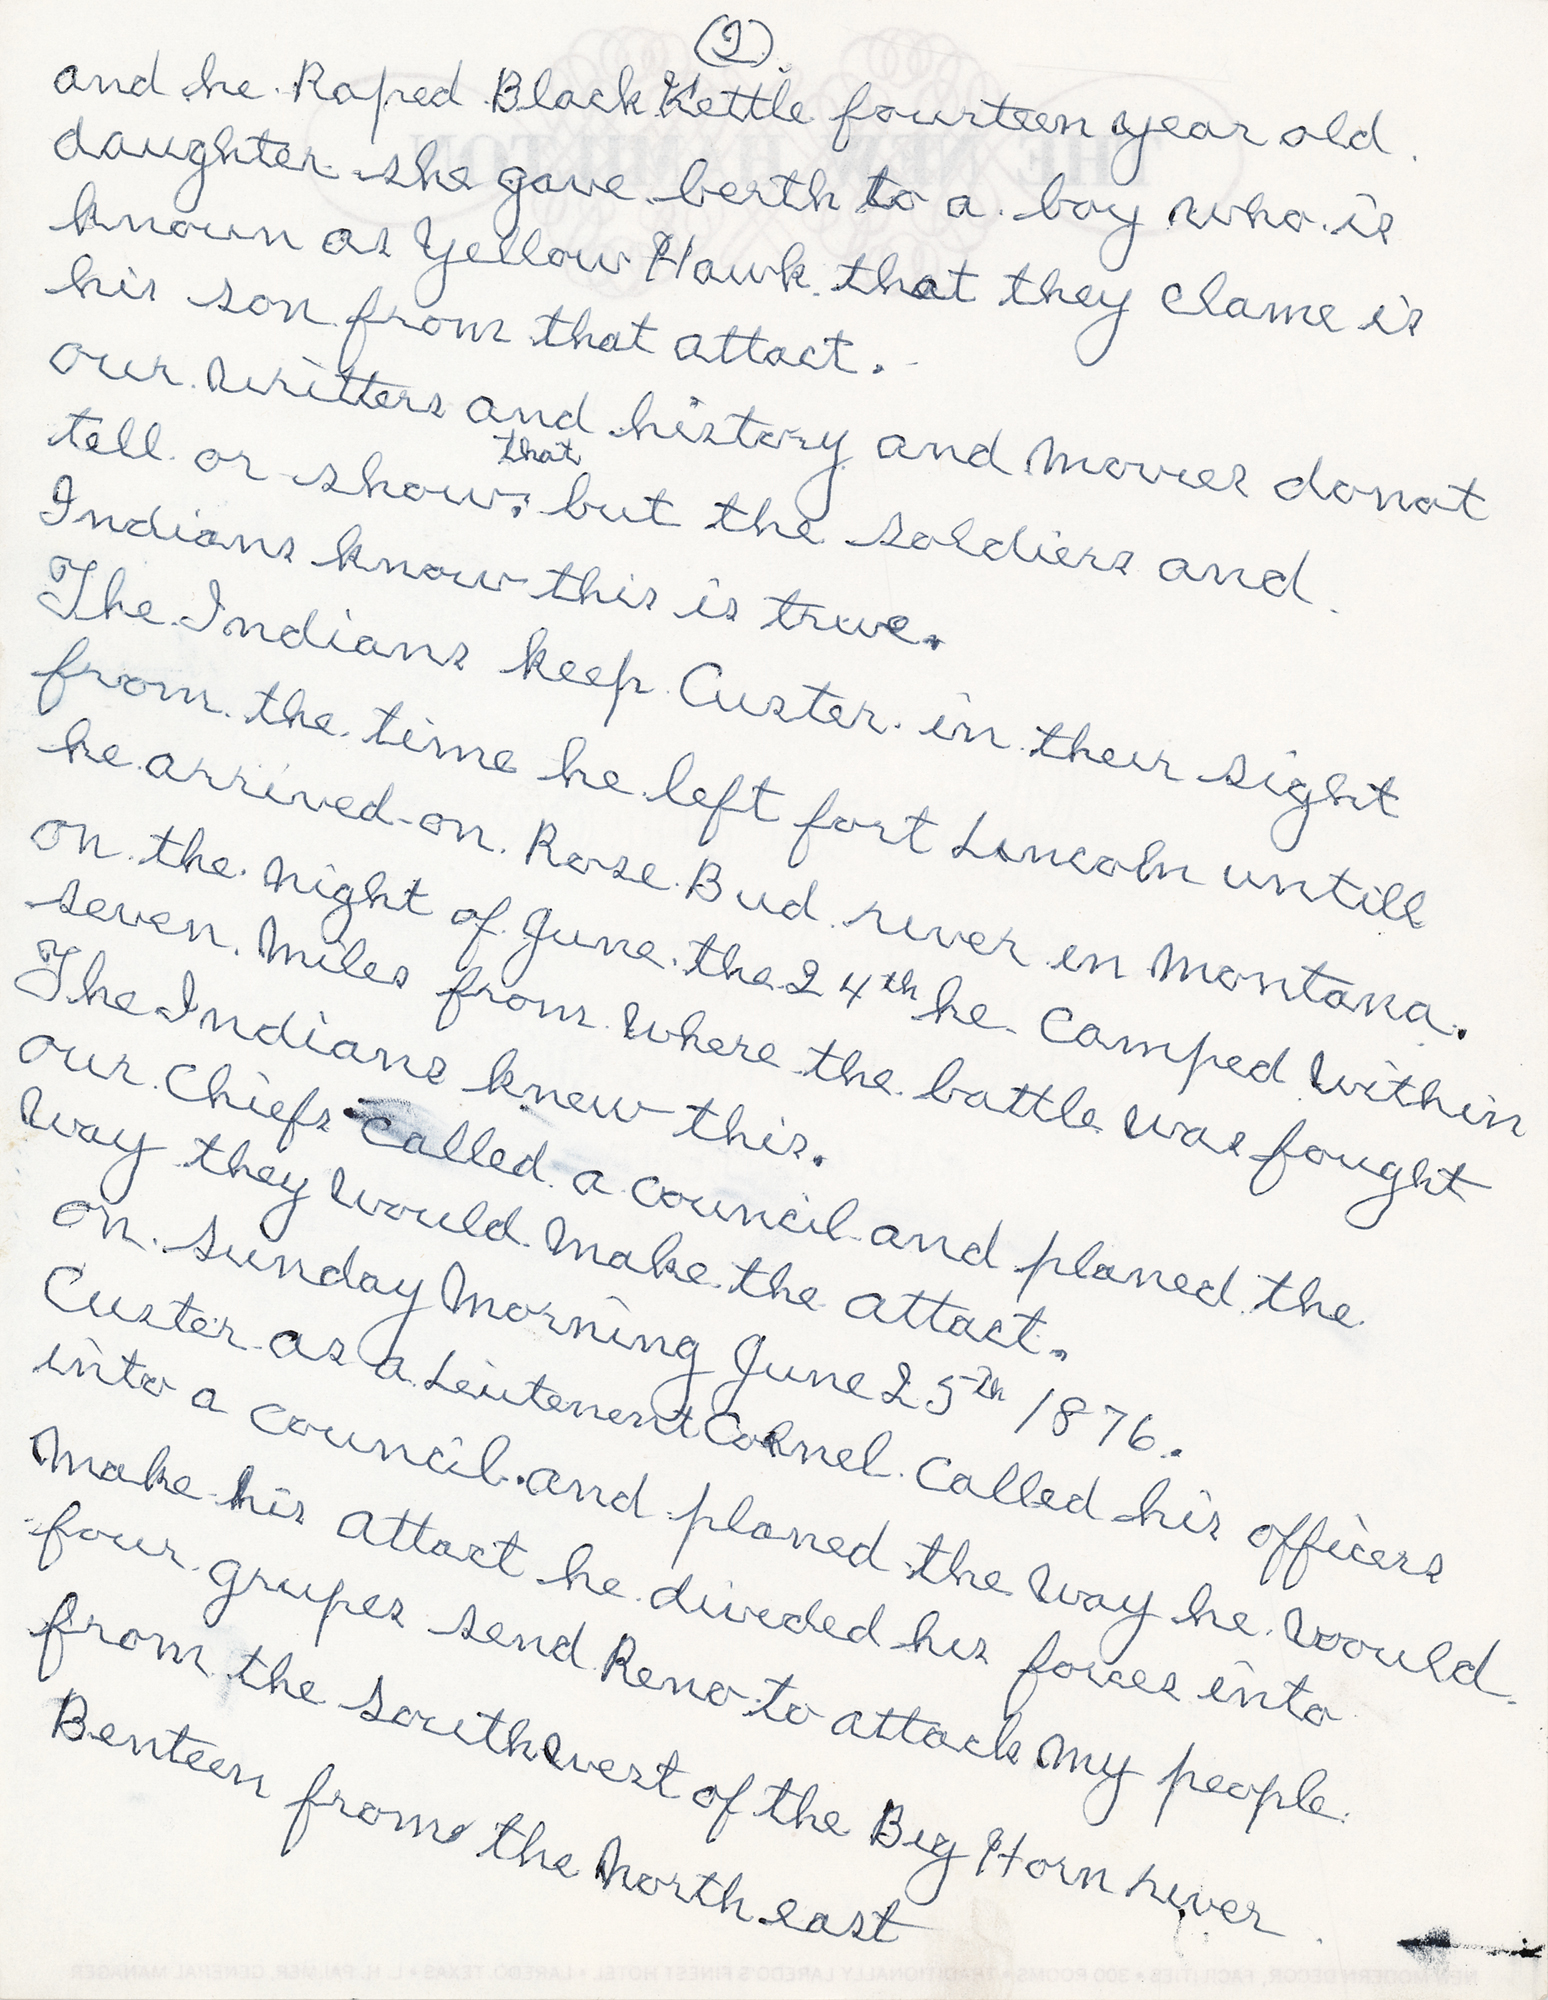 (2)
and he Raped Black Kettle fourteen year old
daughter she gave berth to a boy who is
known as Yellow Hawk that they clame is
his son from that attact.
our writters and history and Movies donot
tell or show that but the soldiers and
Indians know this is true.
The Indians keep Custer in their sight
from the time he left fort Lincoln untill
he arrived on Rose Bud river in Montana.
on the night of June the 24th he Camped within
seven Miles from where the battle was fought
The Indians knew this.
our Chiefs called a council and planed the
way they would Make the attact.
on sunday Morning June 25th 1876.
Custer as a Leiutenent Colnel Called his officers
into a council and planed the way he would
Make his attact he divided his forces into
four grupes send Reno to attack My people
from the southwest of the Big Horn river
Benteen from the North east
THE NEW HAMILTON
NEW MODERN DECOR, FACILITIES • 300 ROOMS • TRADITIONALLY LAREDO'S FINEST HOTEL • LAREDO, TEXAS • L. H. PALMER, GENERAL MANAGER